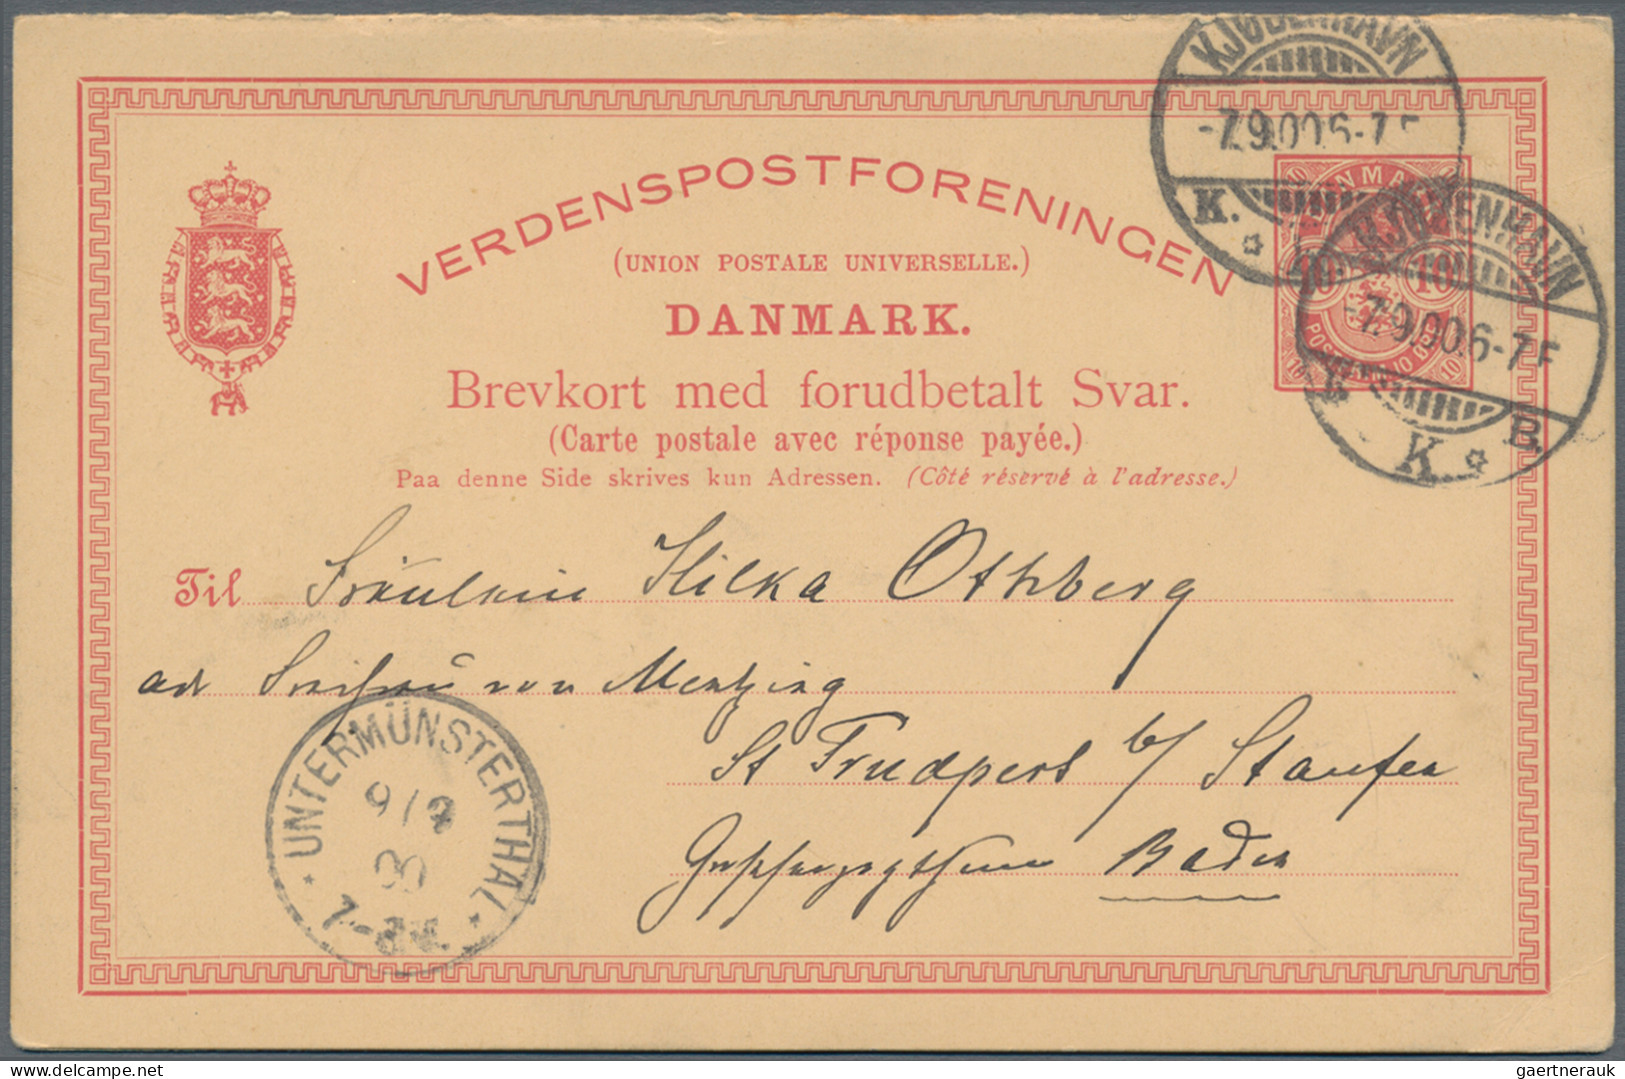 KJØBENHAVN
-7.9.00 6-7 F
K.
VERDENSPOSTFORENINGEN
(UNION POSTALE UNIVERSELLE.)
DANMARK.
Brevkort med forudbetalt Svar.
(Carte postale avec réponse payée.)
Paa denne Side skrives kun Adressen. (Côté réservé à l'adresse.)
DANMARK
10 10
KJØBENHAVN
-7.9.00 6-7 F
K. B.
Til Fräulein Hilka Othberg
Freifrau von Mentzing
St Trudpert b/ Staufen
Baden
UNTERMÜNSTERTHAL
9/9
00
7-8 V.
gaertnerauk